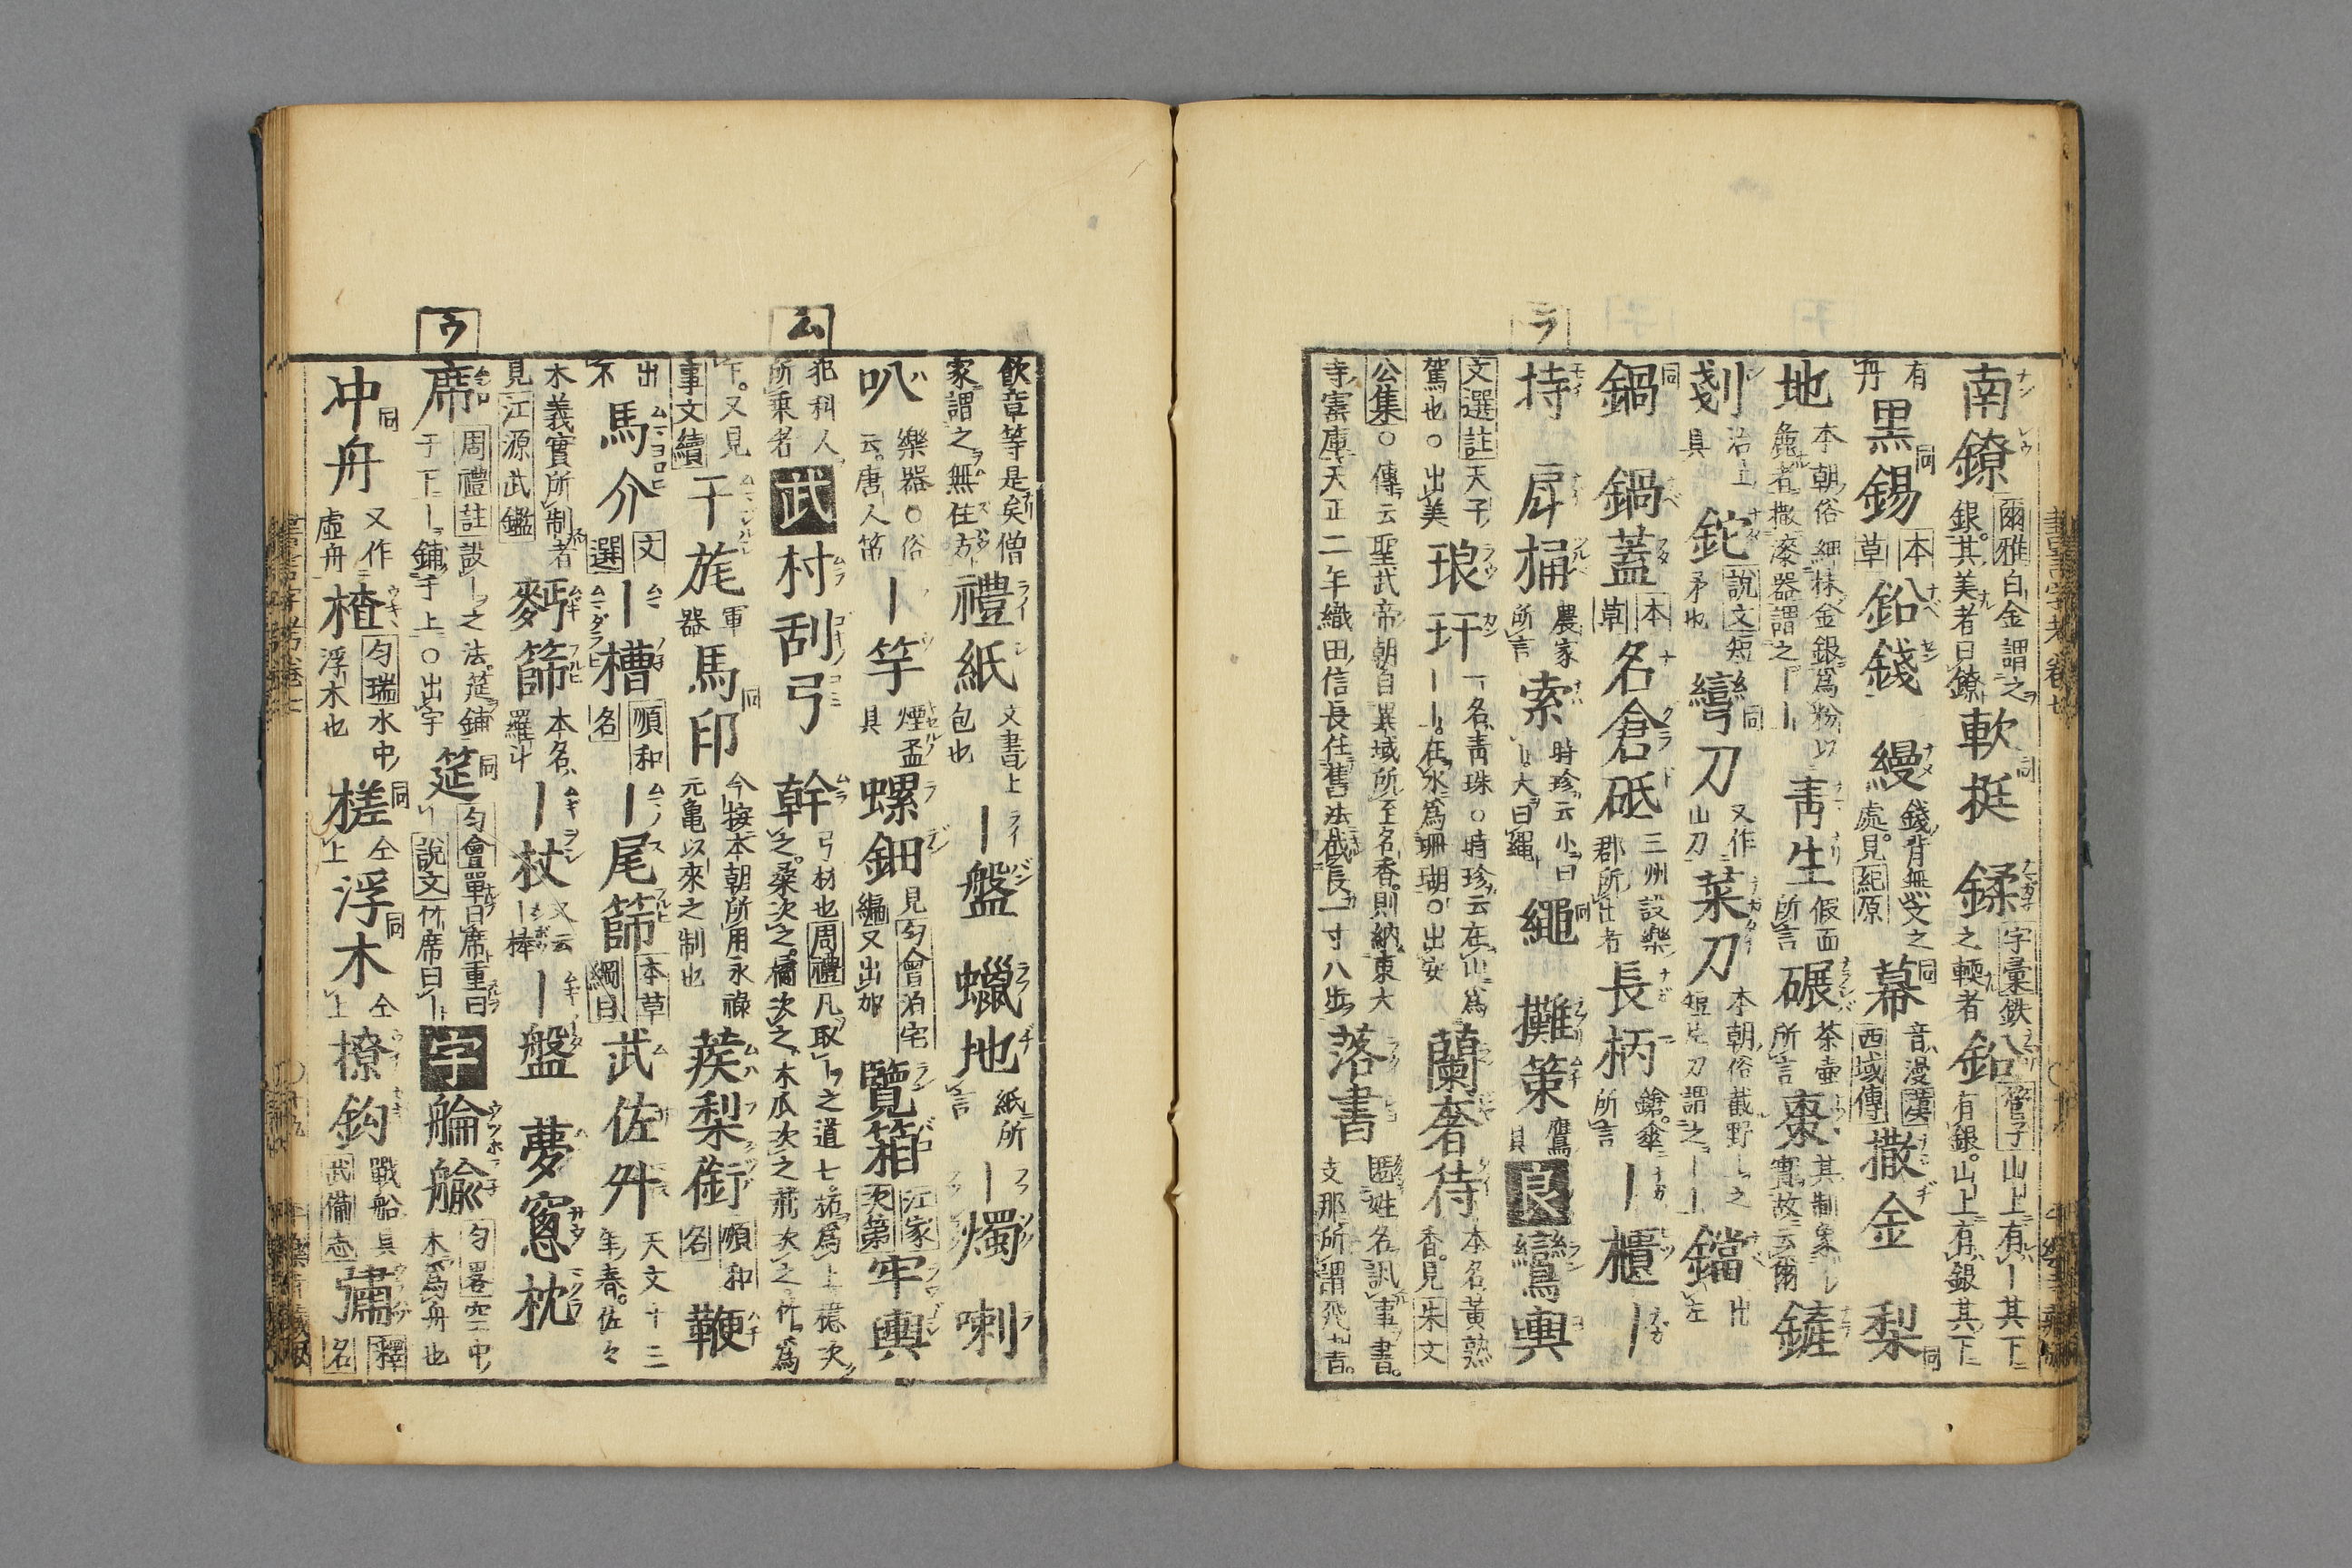 南鐐 爾雅白金謂之銀其美者曰鐐 軟挺 同 鍒 字彙鉄之輭者 鉛 管子山上有一其下有銀山上有銀其下
有丹 黒錫 同 本草 鉛錢 縵 錢背無文之處見紀原 幕 同 音漫漢西域傳 撒金 梨 同
地 本朝俗細抹金銀爲粉以撒漆器謂之ーー 青生 假面所言 碾 茶壺所言 棗 其制象ー實故云爾 鏟
剗 治上具 鉈 説文短矛也 彎刀 同 又作山刀 菜刀 本朝俗截野ー之短刀謂之ーー 鐺 出左
鍋 同 鍋蓋 本草 名倉砥 三州設樂郡所出者 長柄 鎗傘所言 ー櫃 ー
持 桶 農家所言 索 時珍云小曰ー大曰繩 繩 同 攤 策 鷹具 良 鸞輿
文選註天子駕也○出美 琅玕 一名青珠○時珍云在山爲ーー在水爲珊瑚○出安 蘭奢待 本名黃熟香見朱文
公集○傳云聖武帝朝自異域所至名香則納東大寺寳庫天正二年織田信長任舊法截長一寸八歩 落書 匿姓名訊事書支那所謂飛書
ラ
飲章等是矣僧家謂之無住方 禮紙 文書上包也 ー盤 蠟地 紙所言 ー燭 喇
叭 樂器○俗云唐人笛 ー竿 煙盃具 螺鈿 見匀會泊宅編又出 覽箱 江家次第 牢輿
犯科人所乗名 武 村刮弓 幹 弓材也周禮凡取ー之道七柘爲上檍次之桑次之橘次之木瓜次之荊次之竹爲
下又見事文續 干旄 軍器 馬印 同 今按本朝所用永禄元亀以來之制也 蒺梨銜 順和名 鞭
出不 馬介 文選 ー槽 順和名 ー尾篩 本草綱目 武佐舛 天文十二年春佐々
木義實所制者見江源武鑑 麪篩 本名羅斗 ー杖 又云ー棒 ー盤 夢窻枕
席 周禮註設ー之法筵鋪于下ー鋪于上○出字 筵 同 匀會單曰席重曰ー説文竹席曰ー 宇 艫 匀畧空中木爲舟也
冲舟 同 又作虛舟 楂 匀瑞水中浮木也 槎 同 仝上 浮木 同 仝上 撩鈎 戰船具武備志 彇 釋名
ム
ウ